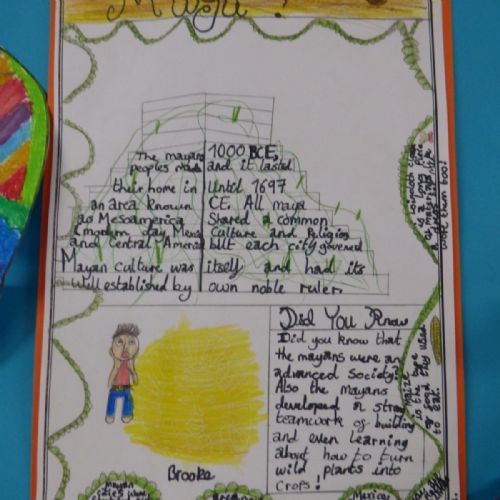 Maya
The mayans
peoples made
their home in
an area known
as Mesoamerica
(modern day Mexi
and Central America)
Mayan culture was
well established by
1000 BCE,
and it lasted
until 1697
CE. All maya
Shared a common
Culture and Religion
bilt each city governed
itself and had its
own noble ruler.
Did You Know
Did you know that
the mayans were an
advanced society?
Also the Mayans
developed a strong
teamwork of building
and even learning
about how to turn
wild plants into
crops!
Brooke
Maize
is the type
of food they used
to eat.
work them too!
Mayan
cities were
Mexico